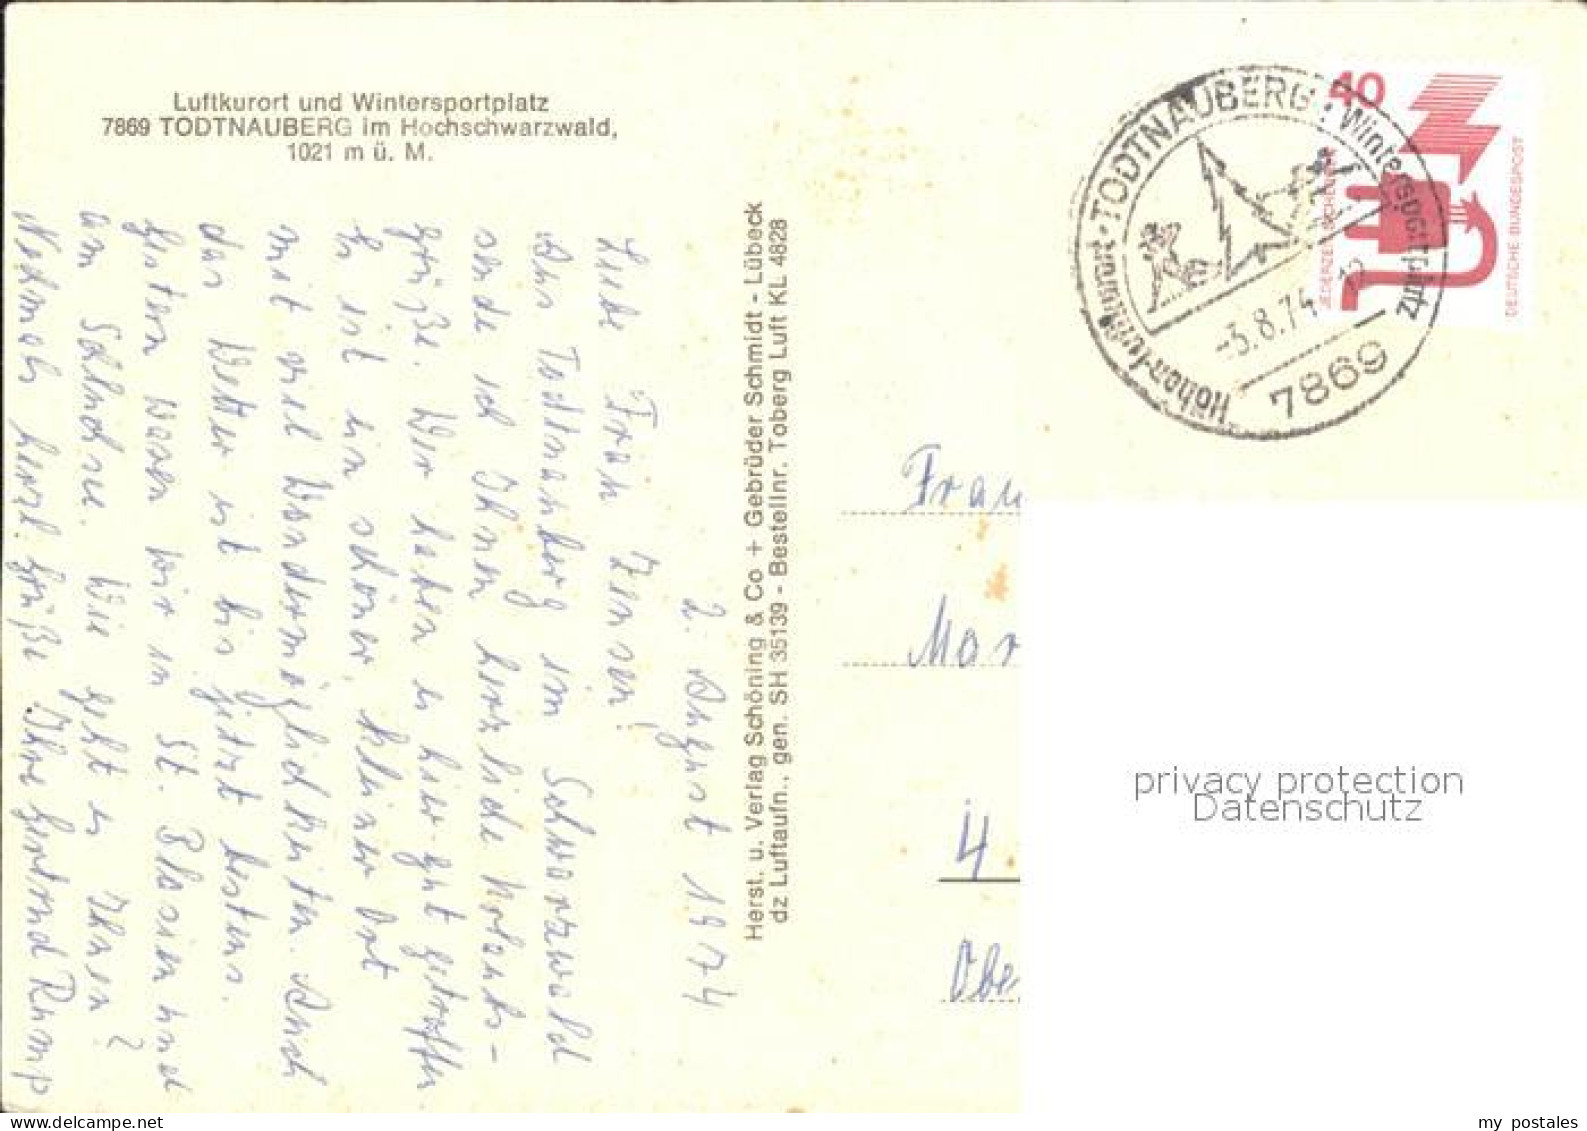 Luftkurort und Wintersportplatz
7869 TODTNAUBERG im Hochschwarzwald,
1021 m ü. M.
2. August 1974
Liebe Frau Jensen!
Aus Todtnauberg im Schwarzwald
sende ich Ihnen herzliche Urlaubs-
grüße. Wir haben es hier gut getroffen
Es ist ein schöner, kleiner Ort
mit viel Wandermöglichkeiten. Auch
das Wetter ist bis jetzt bestens.
Gestern waren wir in St. Blasien und
am Schluchsee. Wie geht es Ihnen?
Nochmals herzl. Grüße Ihre Gertrud Rump
Herst. u. Verlag Schöning & Co + Gebrüder Schmidt - Lübeck
dz Luftaufn., gen. SH 35139 - Bestellnr. Toberg Luft KL 4828
Höhen-Luftkurort · TODTNAUBERG · Wintersportplatz
-3.8.74 - 12
7869
40
JEDERZEIT SICHERHEIT
DEUTSCHE BUNDESPOST
Frau
Mar
4
Obe
privacy protection
Datenschutz
my postales